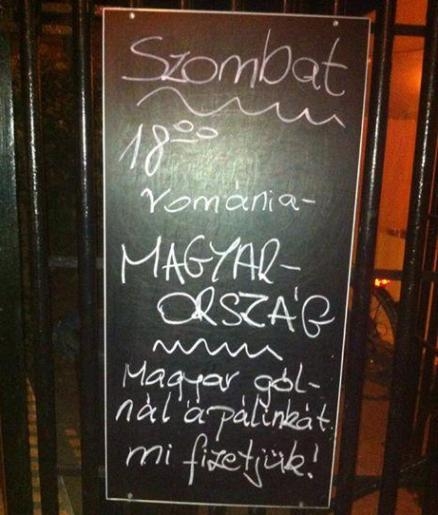 Szombat
18⁰⁰
románia-
MAGYAR-
ORSZÁG
Magyar gól-
nál a pálinkát
mi fizetjük!